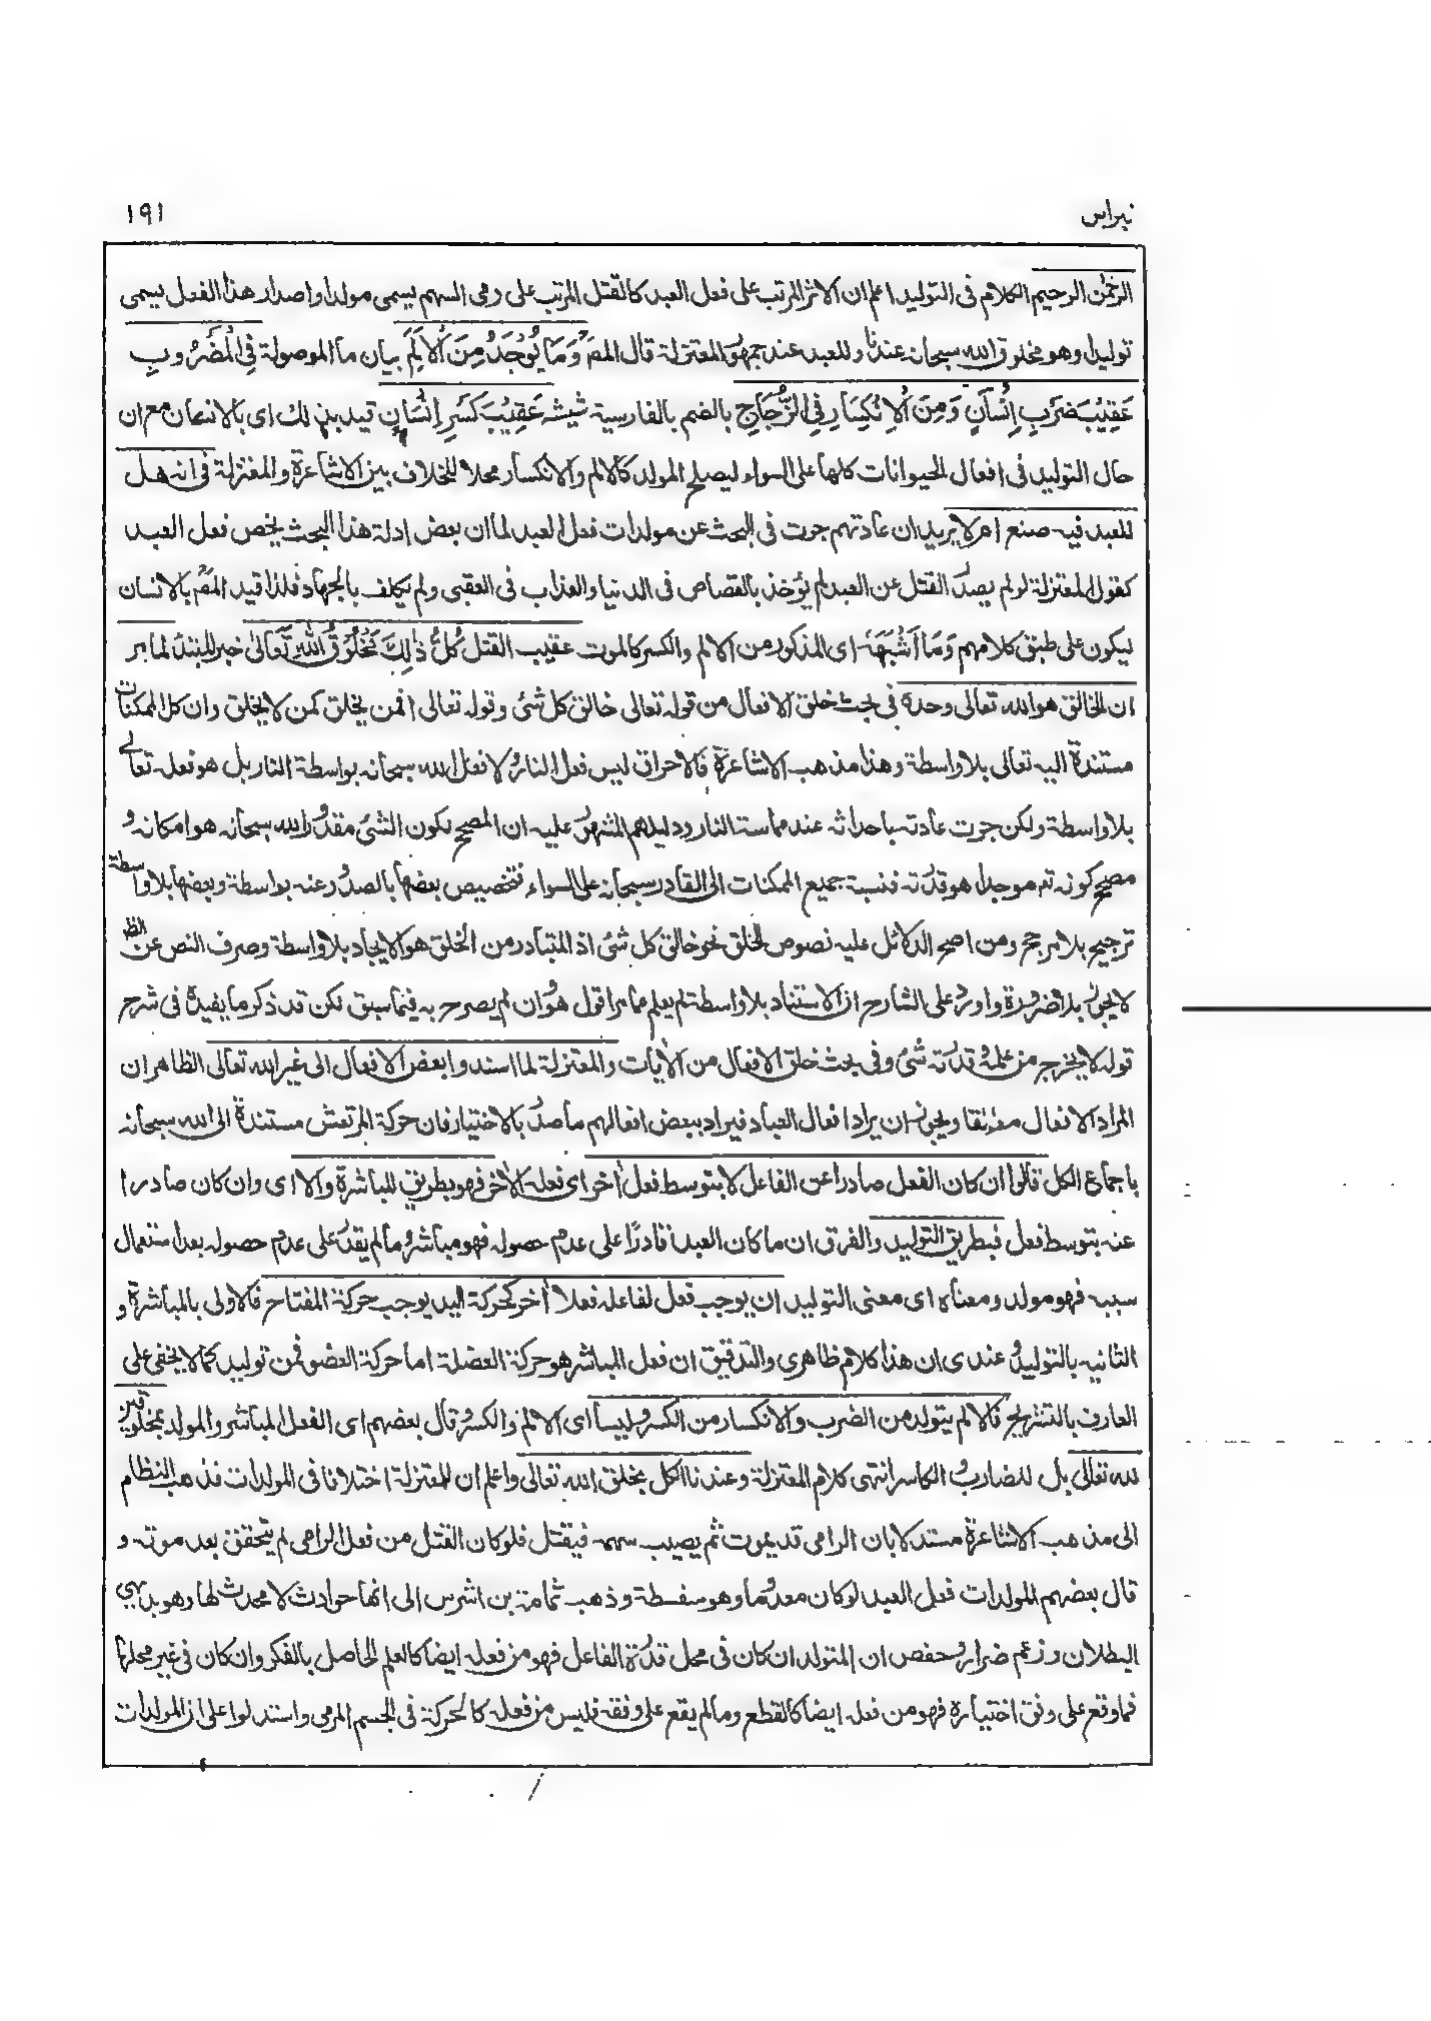 نبراس
١٩١
الرحمٰن الرحيم الكلام فى التوليد اعلم ان الاثر المرتب على فعل العبد كالقتل المرتب على رمى السهم يسمى مولدا واصدار هذا الفعل يسمى
توليدا وهو مخلوق الله سبحانه عندنا وللعبد عند جمهور المعتزلة قال المصَ وَمَا يُوْجَدُ مِنَ الْاَلَمِ بيان ما الموصولة فِى الْمَضْرُوبِ
عَقِيْبَ ضَرْبِ اِنْسَانٍ وَمِنَ الْاِنْكِسَارِ فِى الزُّجَاجِ بالضم بالفارسية شيشه عَقِيْبَ كَسْرِ اِنْسَانٍ قيد بذٰلك اى بالانسان مع ان
حال التوليد فى افعال الحيوانات كلها على السواء ليصلح المولد كالالم والانكسار محلا للخلاف بين الاشاعرة والمعتزلة فى انه هل
للعبد فيه صنع ام لا يريد ان عادتهم جرت فى البحث عن مولدات فعل العبد لما ان بعض ادلة هذا البحث يخص فعل العبد
كقول المعتزلة لو لم يصدر القتل عن العبد لم يؤخذ بالقصاص فى الدنيا والعذاب فى العقبى ولم يكلف بالجهاد فلذا قيد المصَ بالانسان
ليكون على طبق كلامهم وَمَا اَشْبَهَهٗ اى المذكور من الالم والكسر كالموت عقيب القتل كُلُّ ذٰلِكَ مَخْلُوْقُ اللّٰهِ تَعَالٰى خبر للمبتدأ لما مر
ان الخالق هو الله تعالى وحده فى بحث خلق الافعال من قوله تعالى خالق كل شئ وقوله تعالى افمن يخلق كمن لا يخلق وان كل الممكنات
مستندة اليه تعالى بلا واسطة وهذا مذهب الاشاعرة فالاحراق ليس فعل النار ولا فعل الله سبحانه بواسطة النار بل هو فعله تعالى
بلا واسطة ولكن جرت عادته باحداثه عند مماسة النار ودليلهم المشهور عليه ان المصحح لكون الشئ مقدورا لله سبحانه هو امكانه و
مصحح كونه تم موجدا هو قدرته فنسبة جميع الممكنات الى القادر سبحانه على السواء فتخصيص بعضها بالصدور عنه بواسطة وبعضها بلا واسطة
ترجيح بلا مرجح ومن اصح الدلائل عليه نصوص الخلق نحو خالق كل شئ اذ المتبادر من الخلق هو الايجاد بلا واسطة وصرف النص عن الظ
لا يجوز بلا ضرورة واورد على الشارح ان الاستناد بلا واسطة لم يعلم مما مر اقول هو وان لم يصرح به فيما سبق لكن قد ذكر ما يفيده فى شرح
قوله لا يخرج من علمه وقدرته شئ وفى بحث خلق الافعال من الاٰيات والمعتزلة لما اسندوا بعض الافعال الى غير الله تعالى الظاهر ان
المراد الافعال مطلقا ويجوز ان يراد افعال العباد فيراد ببعض افعالهم ما صدر بالاختيار فان حركة المرتعش مستندة الى الله سبحانه
باجماع الكل قالوا ان كان الفعل صادرا عن الفاعل لا بتوسط فعل اٰخر اى فعله الاٰخر فهو بطريق المباشرة والا اى وان كان صادرا
عنه بتوسط فعل فبطريق التوليد والفرق ان ما كان العبد قادرًا على عدم حصوله فهو مباشر وما لم يقدر على عدم حصوله بعد استعمال
سببه فهو مولد ومعناه اى معنى التوليد ان يوجب فعل لفاعله فعلا اٰخر كحركة اليد يوجب حركة المفتاح فالاولى بالمباشرة و
الثانيه بالتوليد وعندى ان هذا كلام ظاهرى والتدقيق ان فعل المباشر هو حركة العضلة اما حركة العضو فمن توليد كما لا يخفى على
العارف بالتشريح فالالم يتولد من الضرب والانكسار من الكسر وليسا اى الالم والكسر وقال بعضهم اى الفعل المباشر والمولد بمخلوقين
لله تعالى بل للضارب والكاسر انتهى كلام المعتزلة وعندنا الكل بخلق الله تعالى واعلم ان للمعتزلة اختلافا فى المولدات فذهب النظام
الى مذهب الاشاعرة مستدلا بان الرامى قد يموت ثم يصيب سهمه فيقتل فلو كان القتل من فعل الرامى لم يتحقق بعد موته و
قال بعضهم المولدات فعل العبد لو كان معدوما وهو سفسطة وذهب ثمامة بن اشرس الى انها حوادث لا محدث لها وهو بديهي
البطلان وزعم ضرار وحفص ان المتولد ان كان فى محل قدرة الفاعل فهو من فعله ايضا كالعلم الحاصل بالفكر وان كان فى غير محلها
فما وقع على وفق اختياره فهو من فعله ايضا كالقطع وما لم يقع على وفقه فليس من فعله كالحركة فى الجسم المرمى واستدلوا على ان المولدات